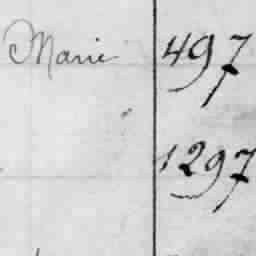 Marie 497
1297